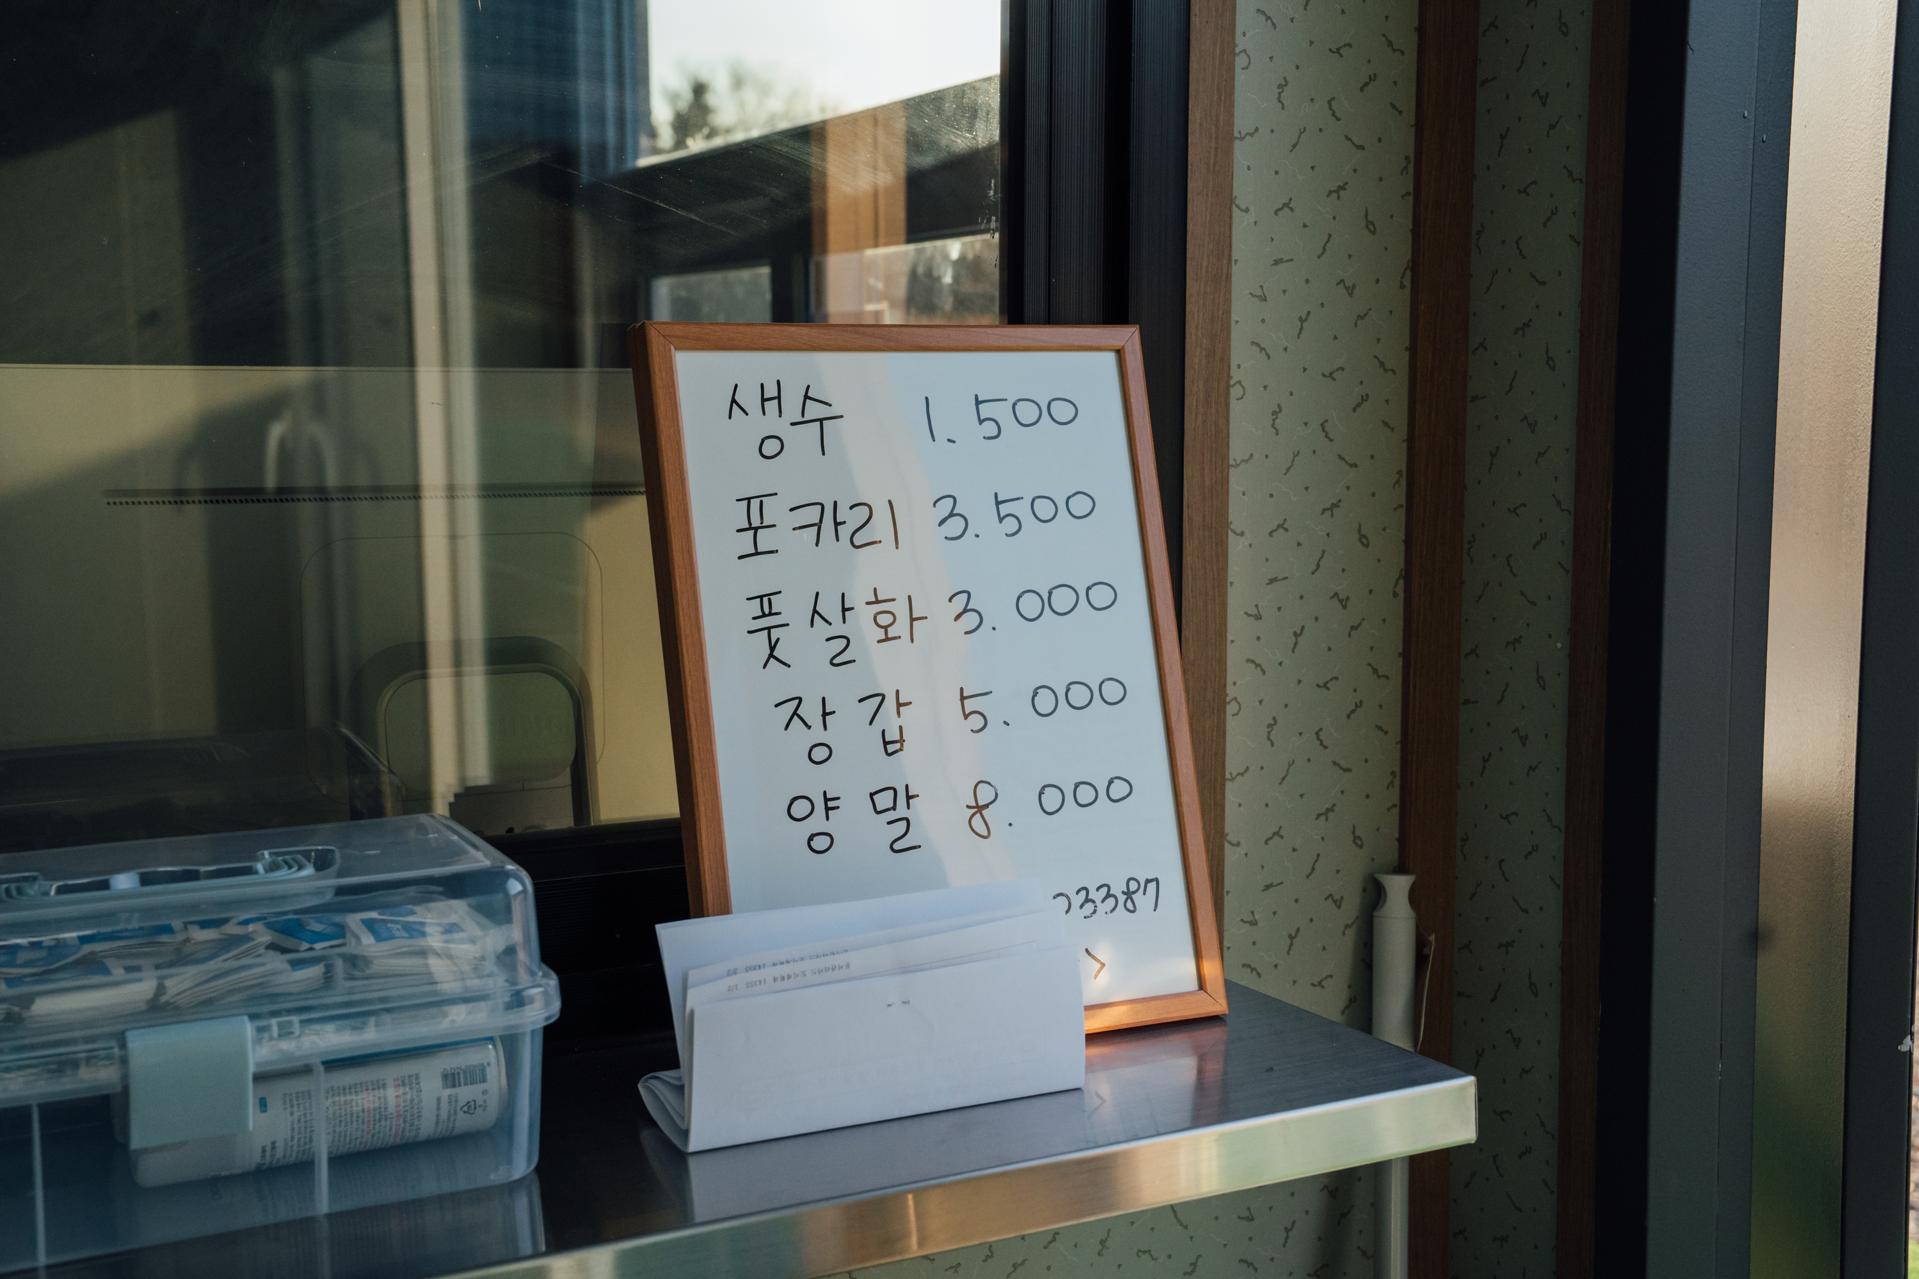 생수 1.500
포카리 3.500
풋살화 3.000
장갑 5.000
양말 8.000
03387
>